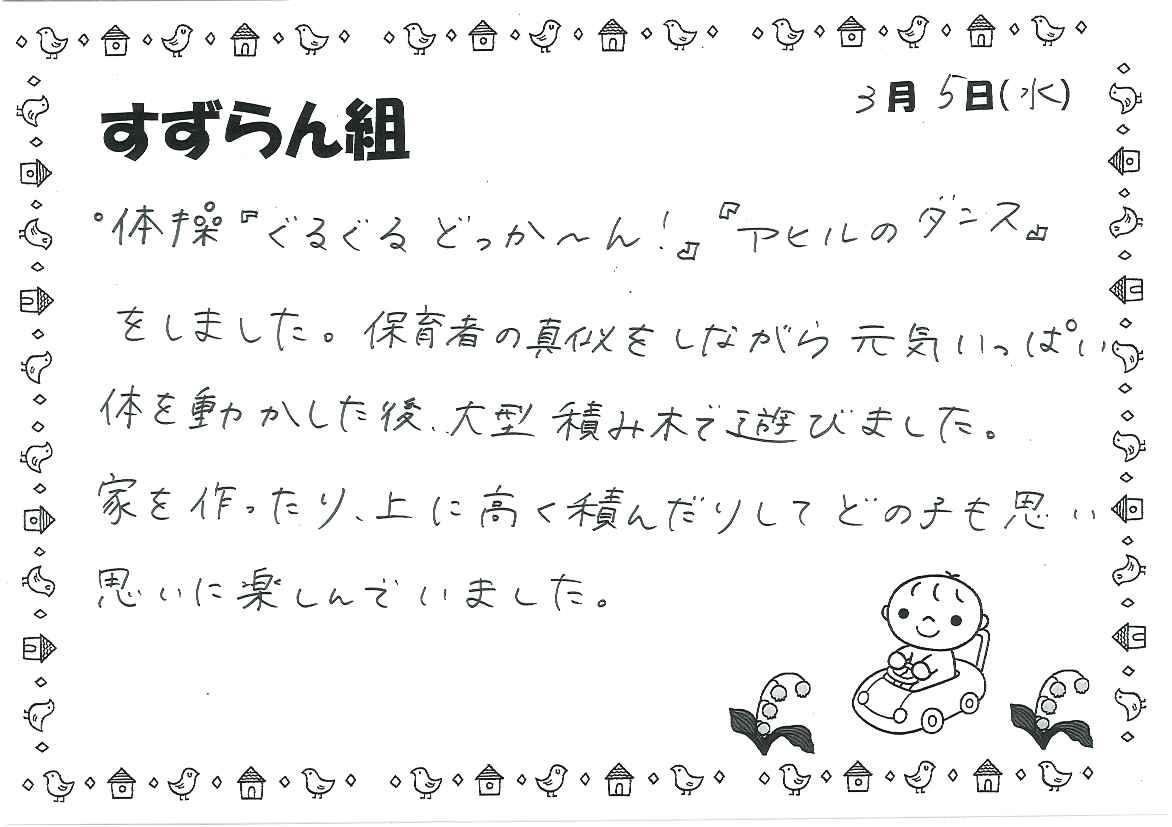 すずらん組
3月5日(水)
°体操『ぐるぐるどっか〜ん!』『アヒルのダンス』
をしました。保育者の真似をしながら元気いっぱい
体を動かした後、大型積み木で遊びました。
家を作ったり、上に高く積んだりしてどの子も思い
思いに楽しんでいました。